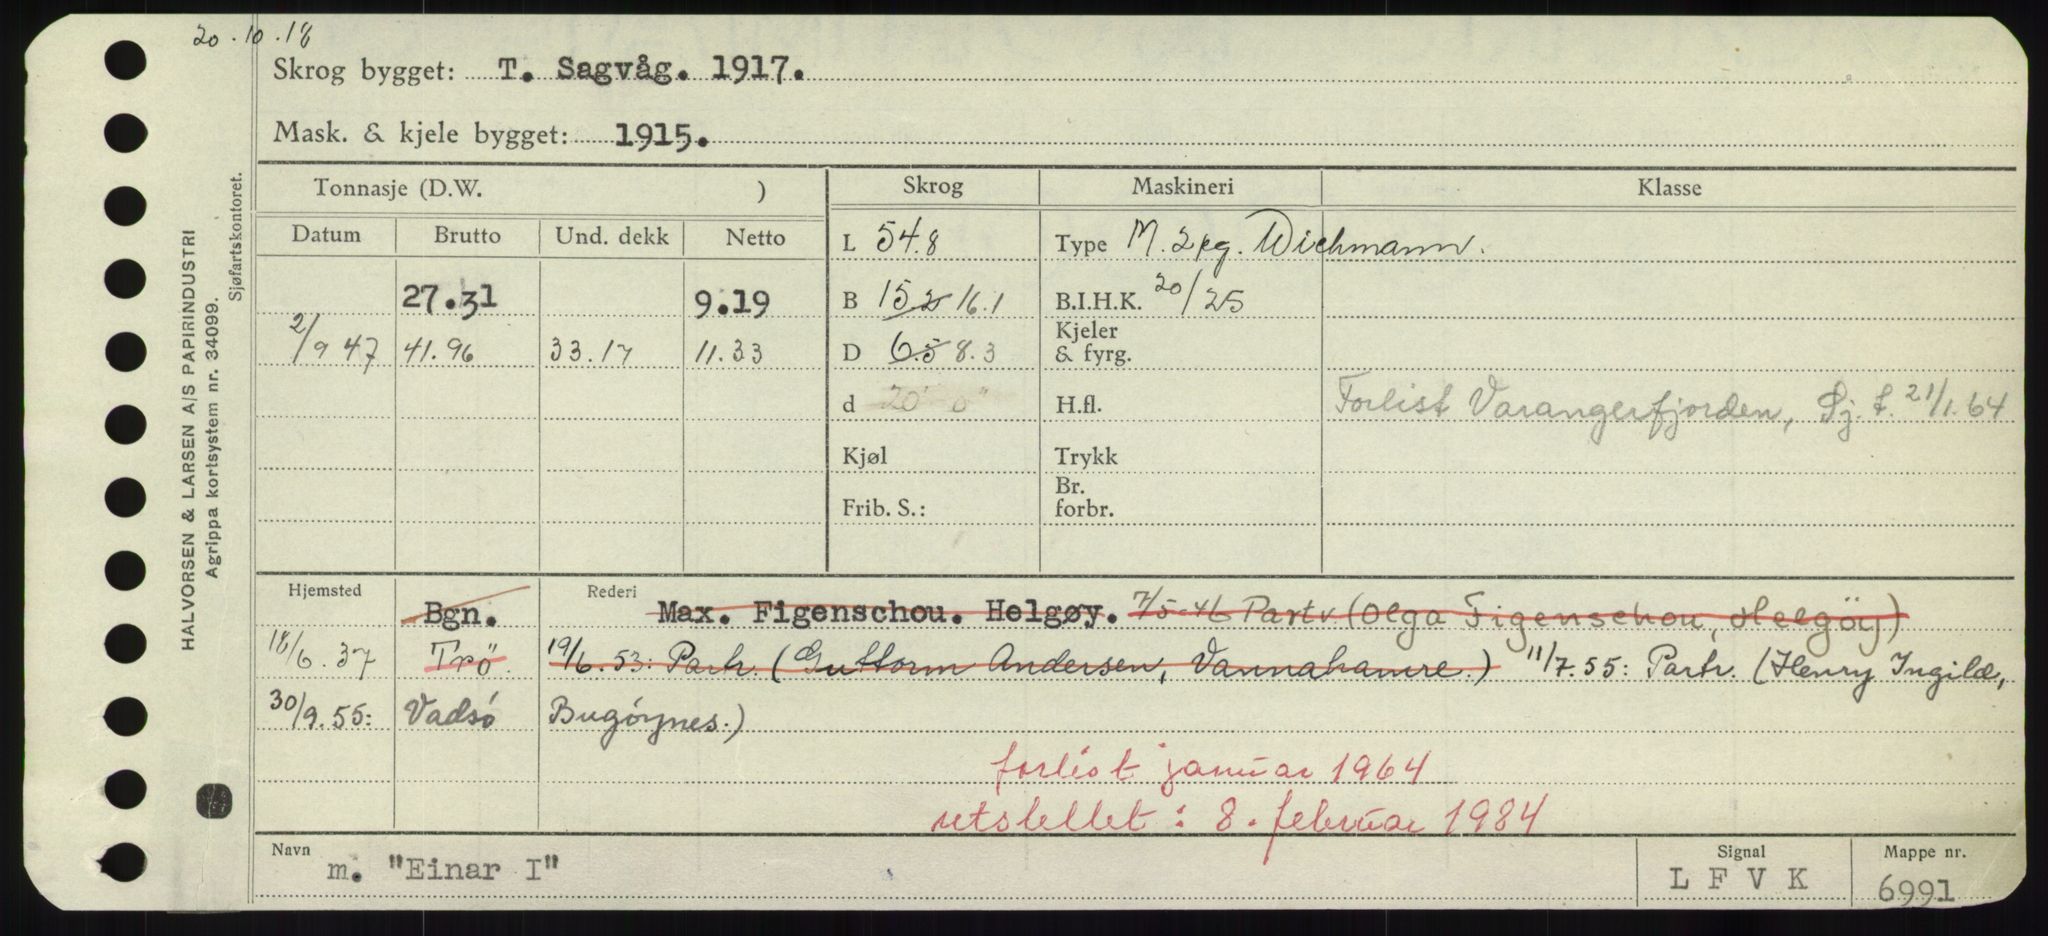 20.10.18
Skrog bygget: T. Sagvåg. 1917.
Mask. & kjele bygget: 1915.
HALVORSEN & LARSEN A/S PAPIRINDUSTRI
Agrippa kortsystem nr. 34099.
Sjøfartskontoret.
Tonnasje (D.W. ) Skrog Maskineri Klasse
Datum Brutto Und. dekk Netto L 54.8 Type M. 2 kg. Wichmann.
27.31 9.19 B 15.2 16.1 B.I.H.K. 20/25
2/9 47 41.96 33.17 11.33 D 6.5 8.3 Kjeler & fyrg.
d 20' 0" H.fl. Forlist Varangerfjorden, Sj. f. 21/1.64
Kjøl Trykk
Frib. S.: Br. forbr.
Hjemsted Bgn. Rederi Max. Figenschou. Helgøy. 7/5-46 Partr (Olga Figenschou, Helgöy)
18/6.37 Trö. 19/6.53: Partr. (Guttorm Andersen, Vannahamre.) 11/7.55: Partr. (Henry Ingilæ,
30/9.55: Vadsö Bugöynes.)
forlist januar 1964
utslettet: 8. februar 1984
Navn m. "Einar I" Signal L F V K Mappe nr. 6991